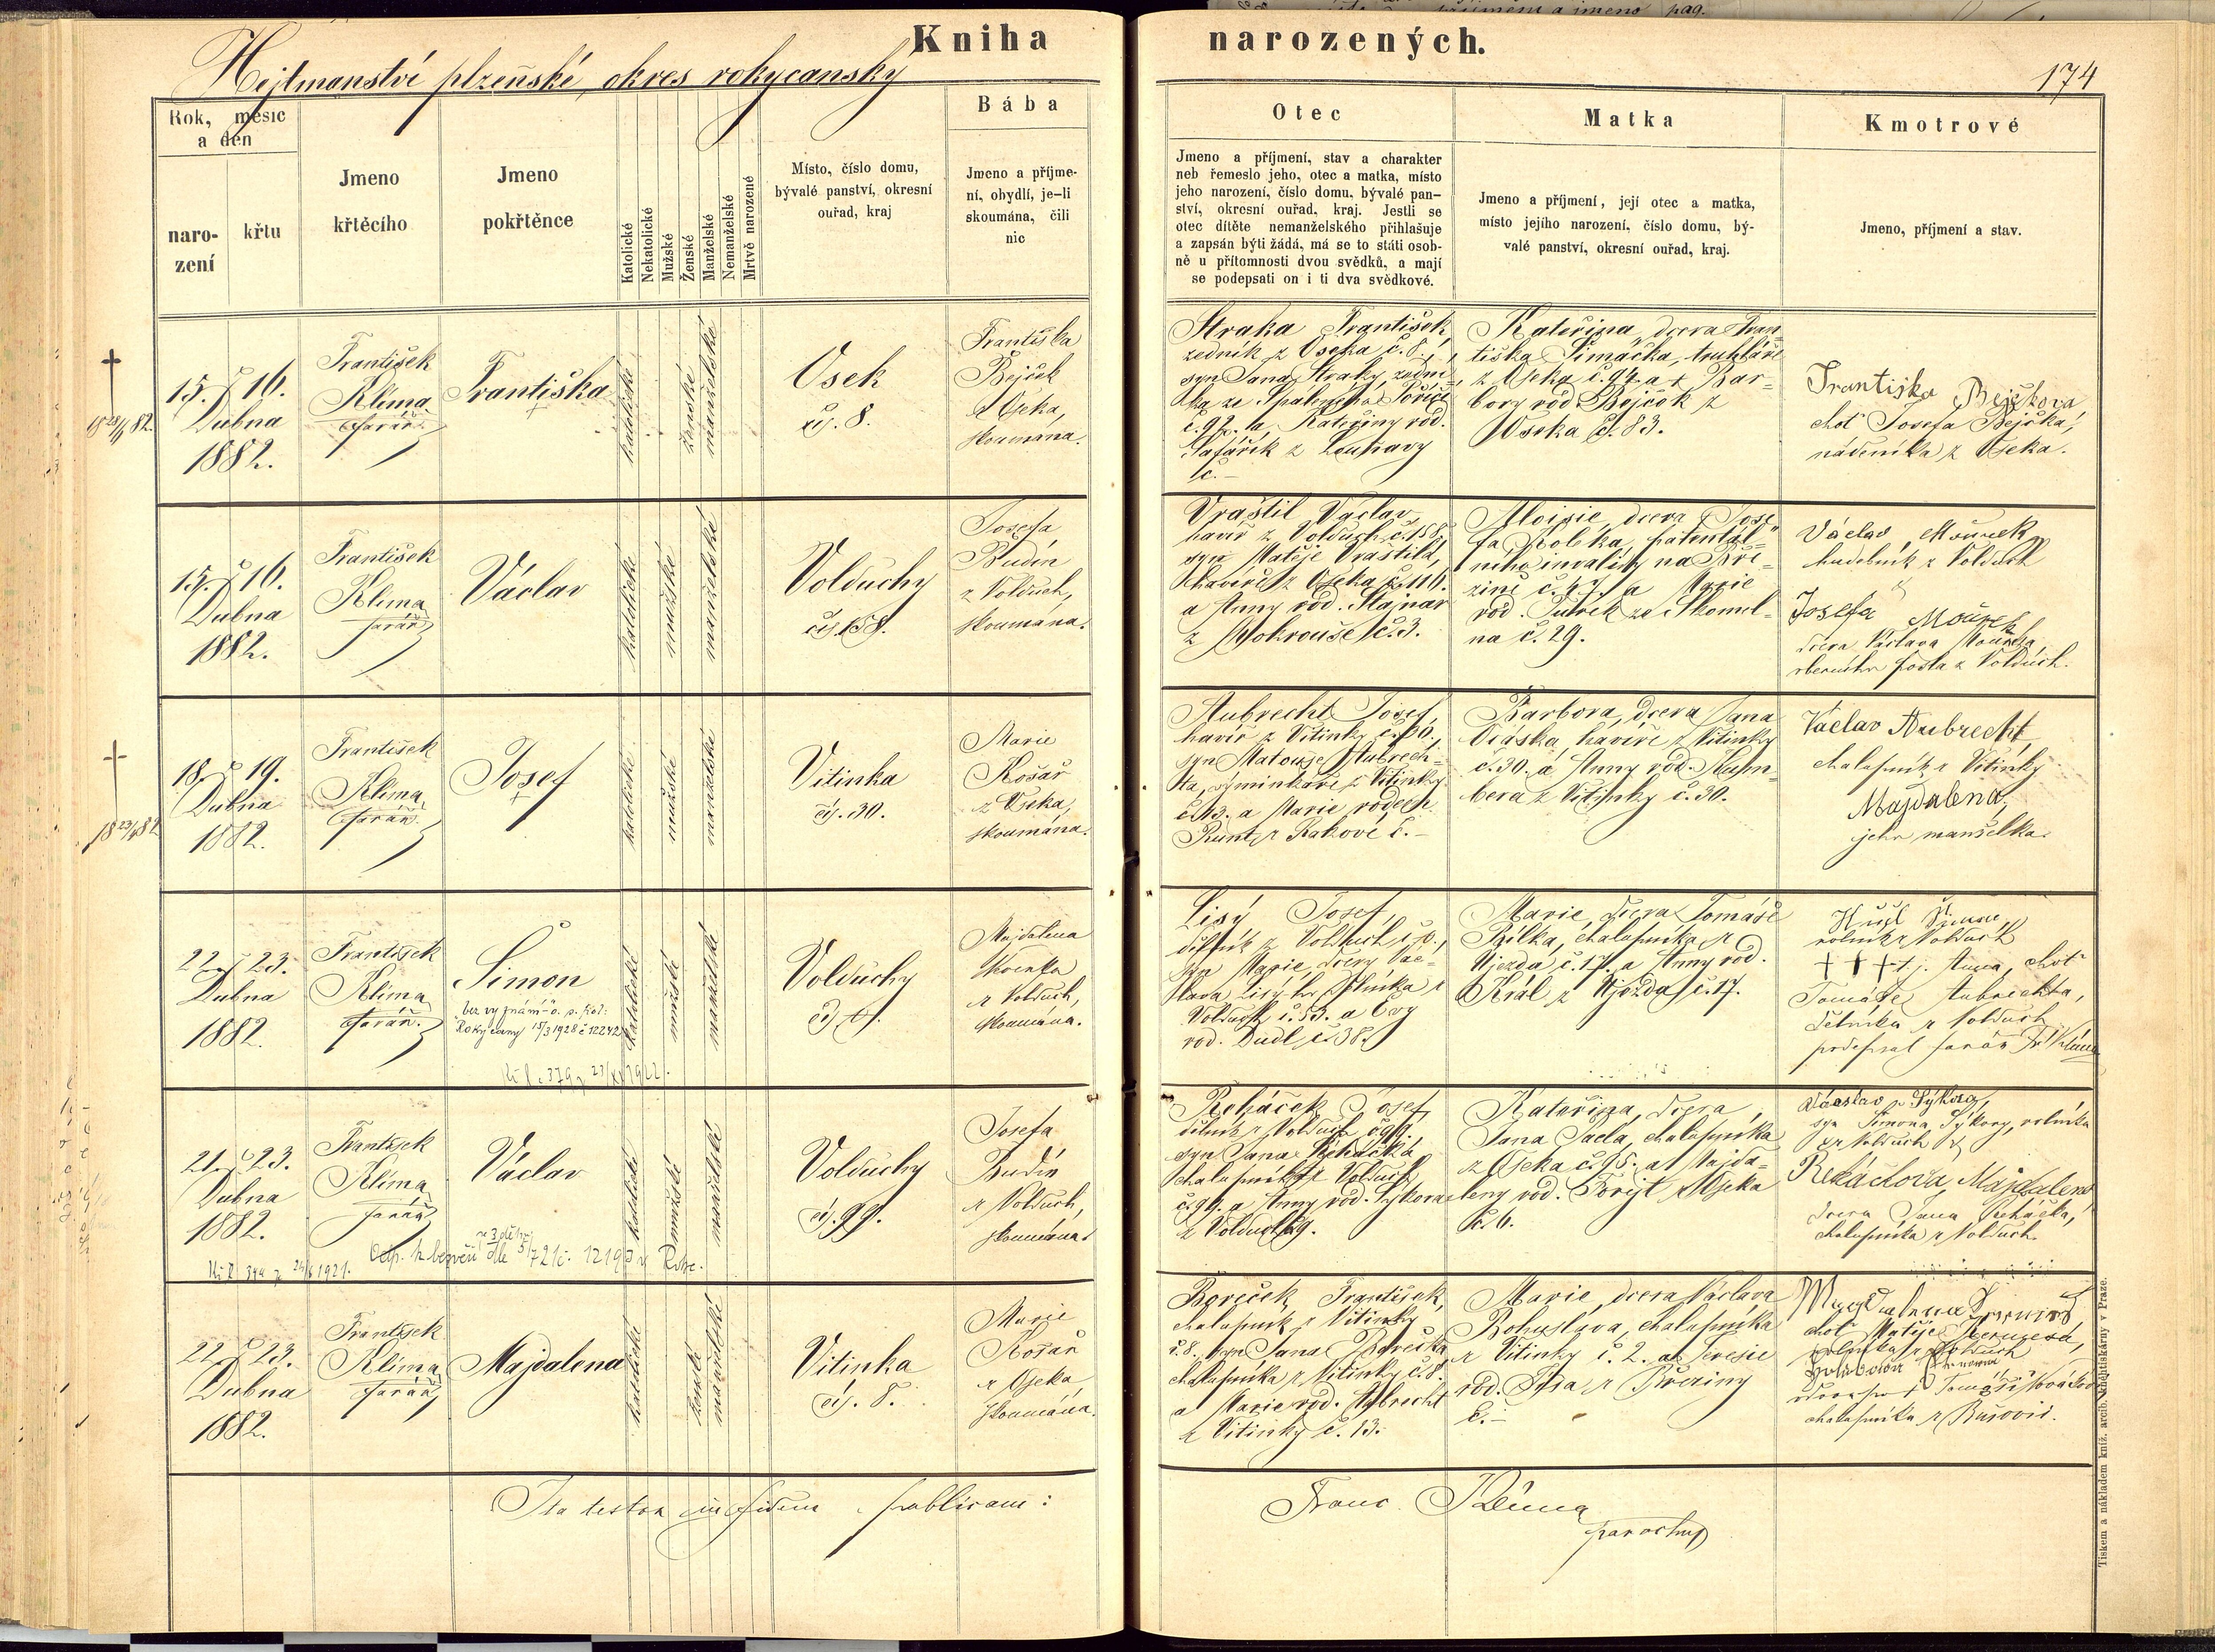 příjmení a jmeno pag.
Kniha narozených.
Hejtmanství plzeňské, okres rokycanský
174
Rok, měsíc
a den
naro-
zení
křtu
Jmeno
křtěcího
Jmeno
pokřtěnce
Katolické
Nekatolické
Mužské
Ženské
Manželské
Nemanželské
Mrtvě narozené
Místo, číslo domu,
bývalé panství, okresní
ouřad, kraj
Bába
Jmeno a příjme-
ní, obydlí, je-li
skoumána, čili
nic
Otec
Jmeno a příjmení, stav a charakter
neb řemeslo jeho, otec a matka, místo
jeho narození, číslo domu, bývalé pan-
ství, okresní ouřad, kraj. Jestli se
otec dítěte nemanželského přihlašuje
a zapsán býti žádá, má se to státi osob-
ně u přítomnosti dvou svědků, a mají
se podepsati on i ti dva svědkové.
Matka
Jmeno a příjmení, její otec a matka,
místo jejího narození, číslo domu, bý-
valé panství, okresní ouřad, kraj.
Kmotrové
Jmeno, příjmení a stav.
15. 16.
Dubna
1882.
František
Klima
farář
Františka
katolické
ženské
manželské
Osek
čís. 8.
Františka
Bejček
z Oseka,
skoumána.
Straka František,
zedník z Oseka č. 8.,
syn Jana Straky, zední-
ka ze Spáleného Poříčí
č. 92. a Kateřiny rod.
Šafařík z Louňavy
č. –
Kateřina, dcera Fran-
tiška Šimáčka, truhláře
z Oseka č. 94. a + Bar-
bory rod. Bejček z
Oseka č. 83.
Františka Bejčková
choť Josefa Bejčka,
nádeníka z Oseka.
15. 16.
Dubna
1882.
František
Klima
farář
Václav
katolické
mužské
manželské
Volduchy
čís. 158.
Josefa
Budín
z Volduch,
skoumána.
Vraštil Václav,
havíř z Volduch č. 158,
syn Matěje Vraštila,
havíře z Oseka č. 116.
a Anny rod. Štajnar
z Mokrouše č. 3.
Aloisie, dcera Jose-
fa Koleka, patentál-
ního invalidy na Bře-
zině č. 47. a Marie
rod. Tuřek ze Skomel-
na č. 29.
Václav Mouřek
hudebník z Volduch
Josefa Mouřek
dcera Václava Mouřka,
obecního posla z Volduch.
18. 19.
Dubna
1882.
František
Klima
farář.
Josef
katolické
mužské
manželské
Vitinka
čís. 30.
Marie
Košař
z Oseka,
skoumána.
Aubrecht Josef,
havíř z Vitinky č. 30.,
syn Matouše Aubrech-
ta, výminkáře z Vitinky
č. 13. a Marie rozen.
Runt z Kakové č. –
Barbora, dcera Jana
Oráska, havíře z Vitinky
č. 30. a Anny rod. Kum-
bera z Vitinky č. 30.
Václav Aubrecht
chalupník z Vitinky
Majdalena,
jeho manželka.
22. 23.
Dubna
1882.
František
Klima
farář.
Šimon
bez vyznání
Rokycany 15/3 1928 č 12242
katolické
mužské
manželské
Volduchy
Majdalena
z Volduch,
skoumána.
Lisý Josef,
dělník z Volduch
syn Marie, dcery Vác-
lava Lisýho, dělníka z
Volduch č. 53. a Evy
rod. Dudl č. 38.
Marie, dcera Tomáše
Bílka, chalupníka z
Újezda č. 17. a Anny rod.
Král z Újezda č. 17.
rolník z Volduch
+ + + t.j. Anna, choť
Tomáše Aubrechta,
dělníka z Volduch
podepsal farář Fr. Klima
21. 23.
Dubna
1882.
František
Klima
farář
Václav
katolické
mužské
manželské
Volduchy
čís. 99.
Josefa
Budín
z Volduch,
skoumána.
Řeháček Josef,
dělník z Volduch č. 99.
syn Jana Řeháčka,
chalupníka z Volduch
č. 99. a Anny rod. Sýkora
z Volduch
Kateřina, dcera
Jana Pacla, chalupníka
z Oseka č. 95. a Majda-
leny rod. z Oseka
č. 6.
Václav Sýkora,
syn Šimona Sýkory, rolníka
z Volduch
Řeháčková Majdalena
dcera Jana Řeháčka,
chalupníka z Volduch.
22. 23.
Dubna
1882.
František
Klima
farář
Majdalena
katolické
ženské
manželské
Vitinka
čís. 8.
Marie
Košař
z Oseka
skoumána.
Boreček František,
chalupník z Vitinky
č. 8., syn Jana Borečka,
chalupníka z Vitinky č. 8.
a Marie rod. Aubrecht
z Vitinky č. 13.
Marie, dcera Václava
Bohuslava, chalupníka
z Vitinky č. 2. a Terezie
rod. z Březiny
č. –
choť Matěje
rolníka z Volduch
chalupníka z Bušovic.
Ita testor in fidem publicam:
Franc. Klima
parochus
Tiskem a nákladem kníž. arcib. knihtiskárny v Praze.